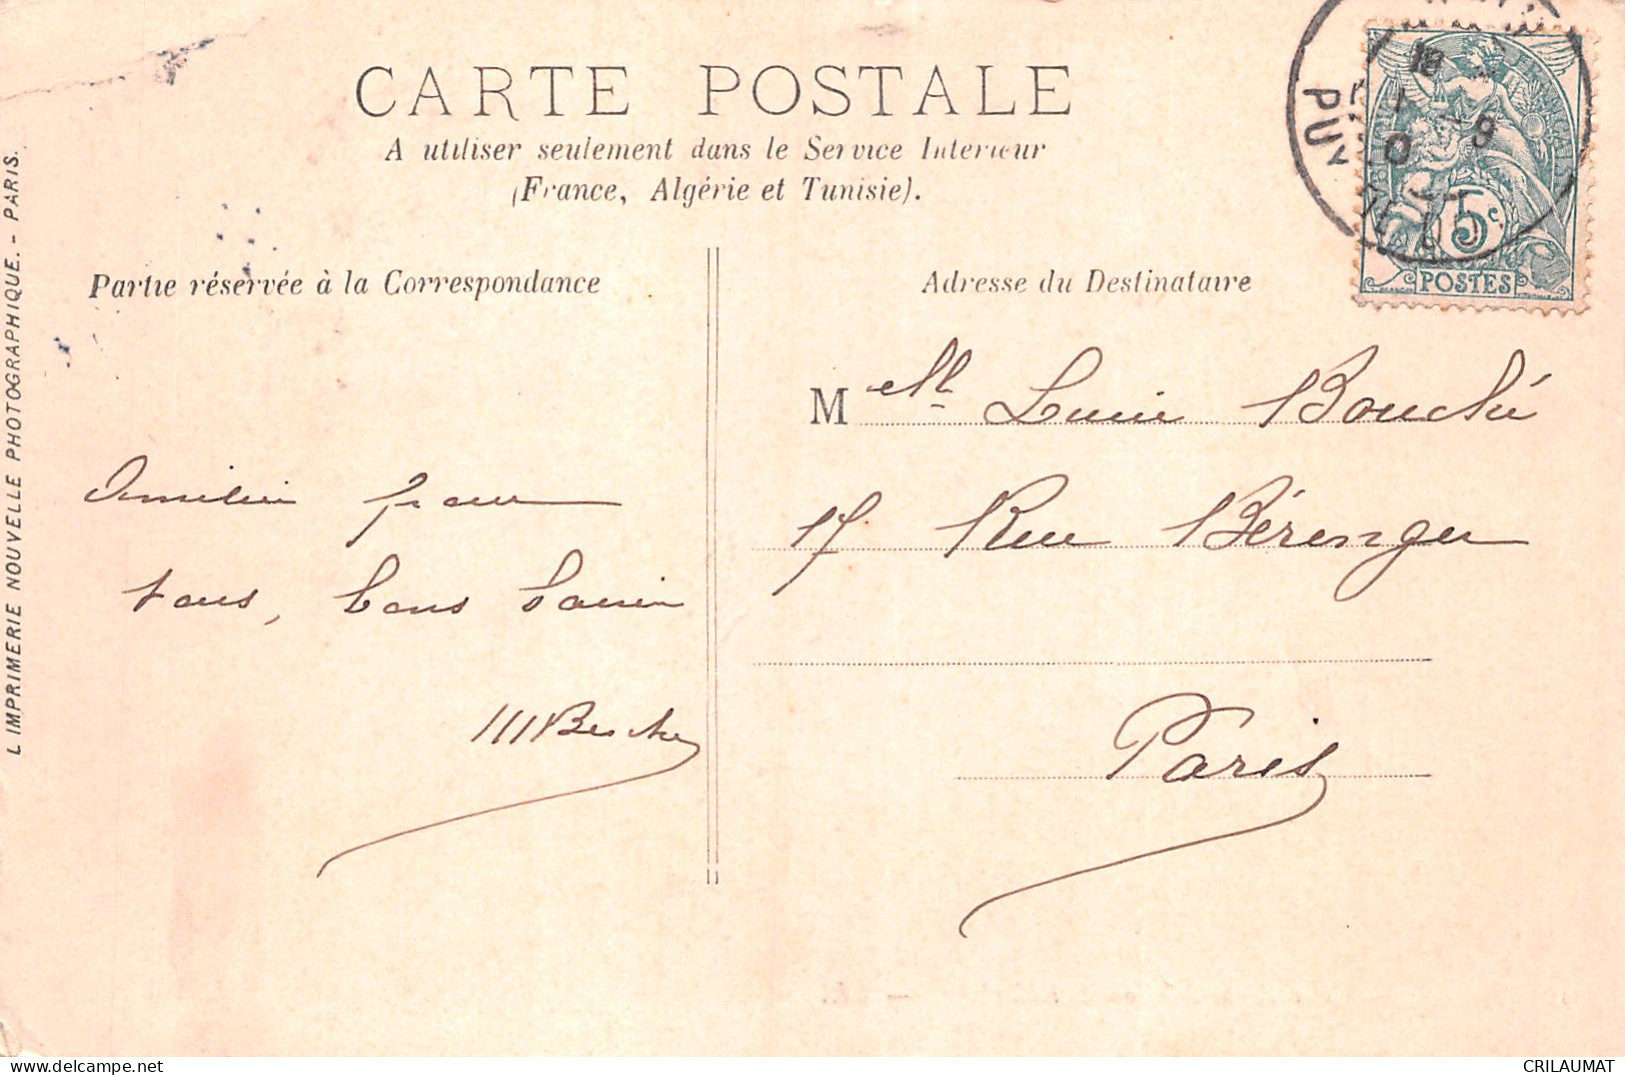 CARTE POSTALE
A utiliser seulement dans le Service Interieur
(France, Algérie et Tunisie).
Partie réservée à la Correspondance
Adresse du Destinataire
L IMPRIMERIE NOUVELLE PHOTOGRAPHIQUE. - PARIS.
PUY
5c
POSTES
Melle Lucie Bouché
17 Rue Bérenger
Paris
pour
tous, bons
CRILAUMAT